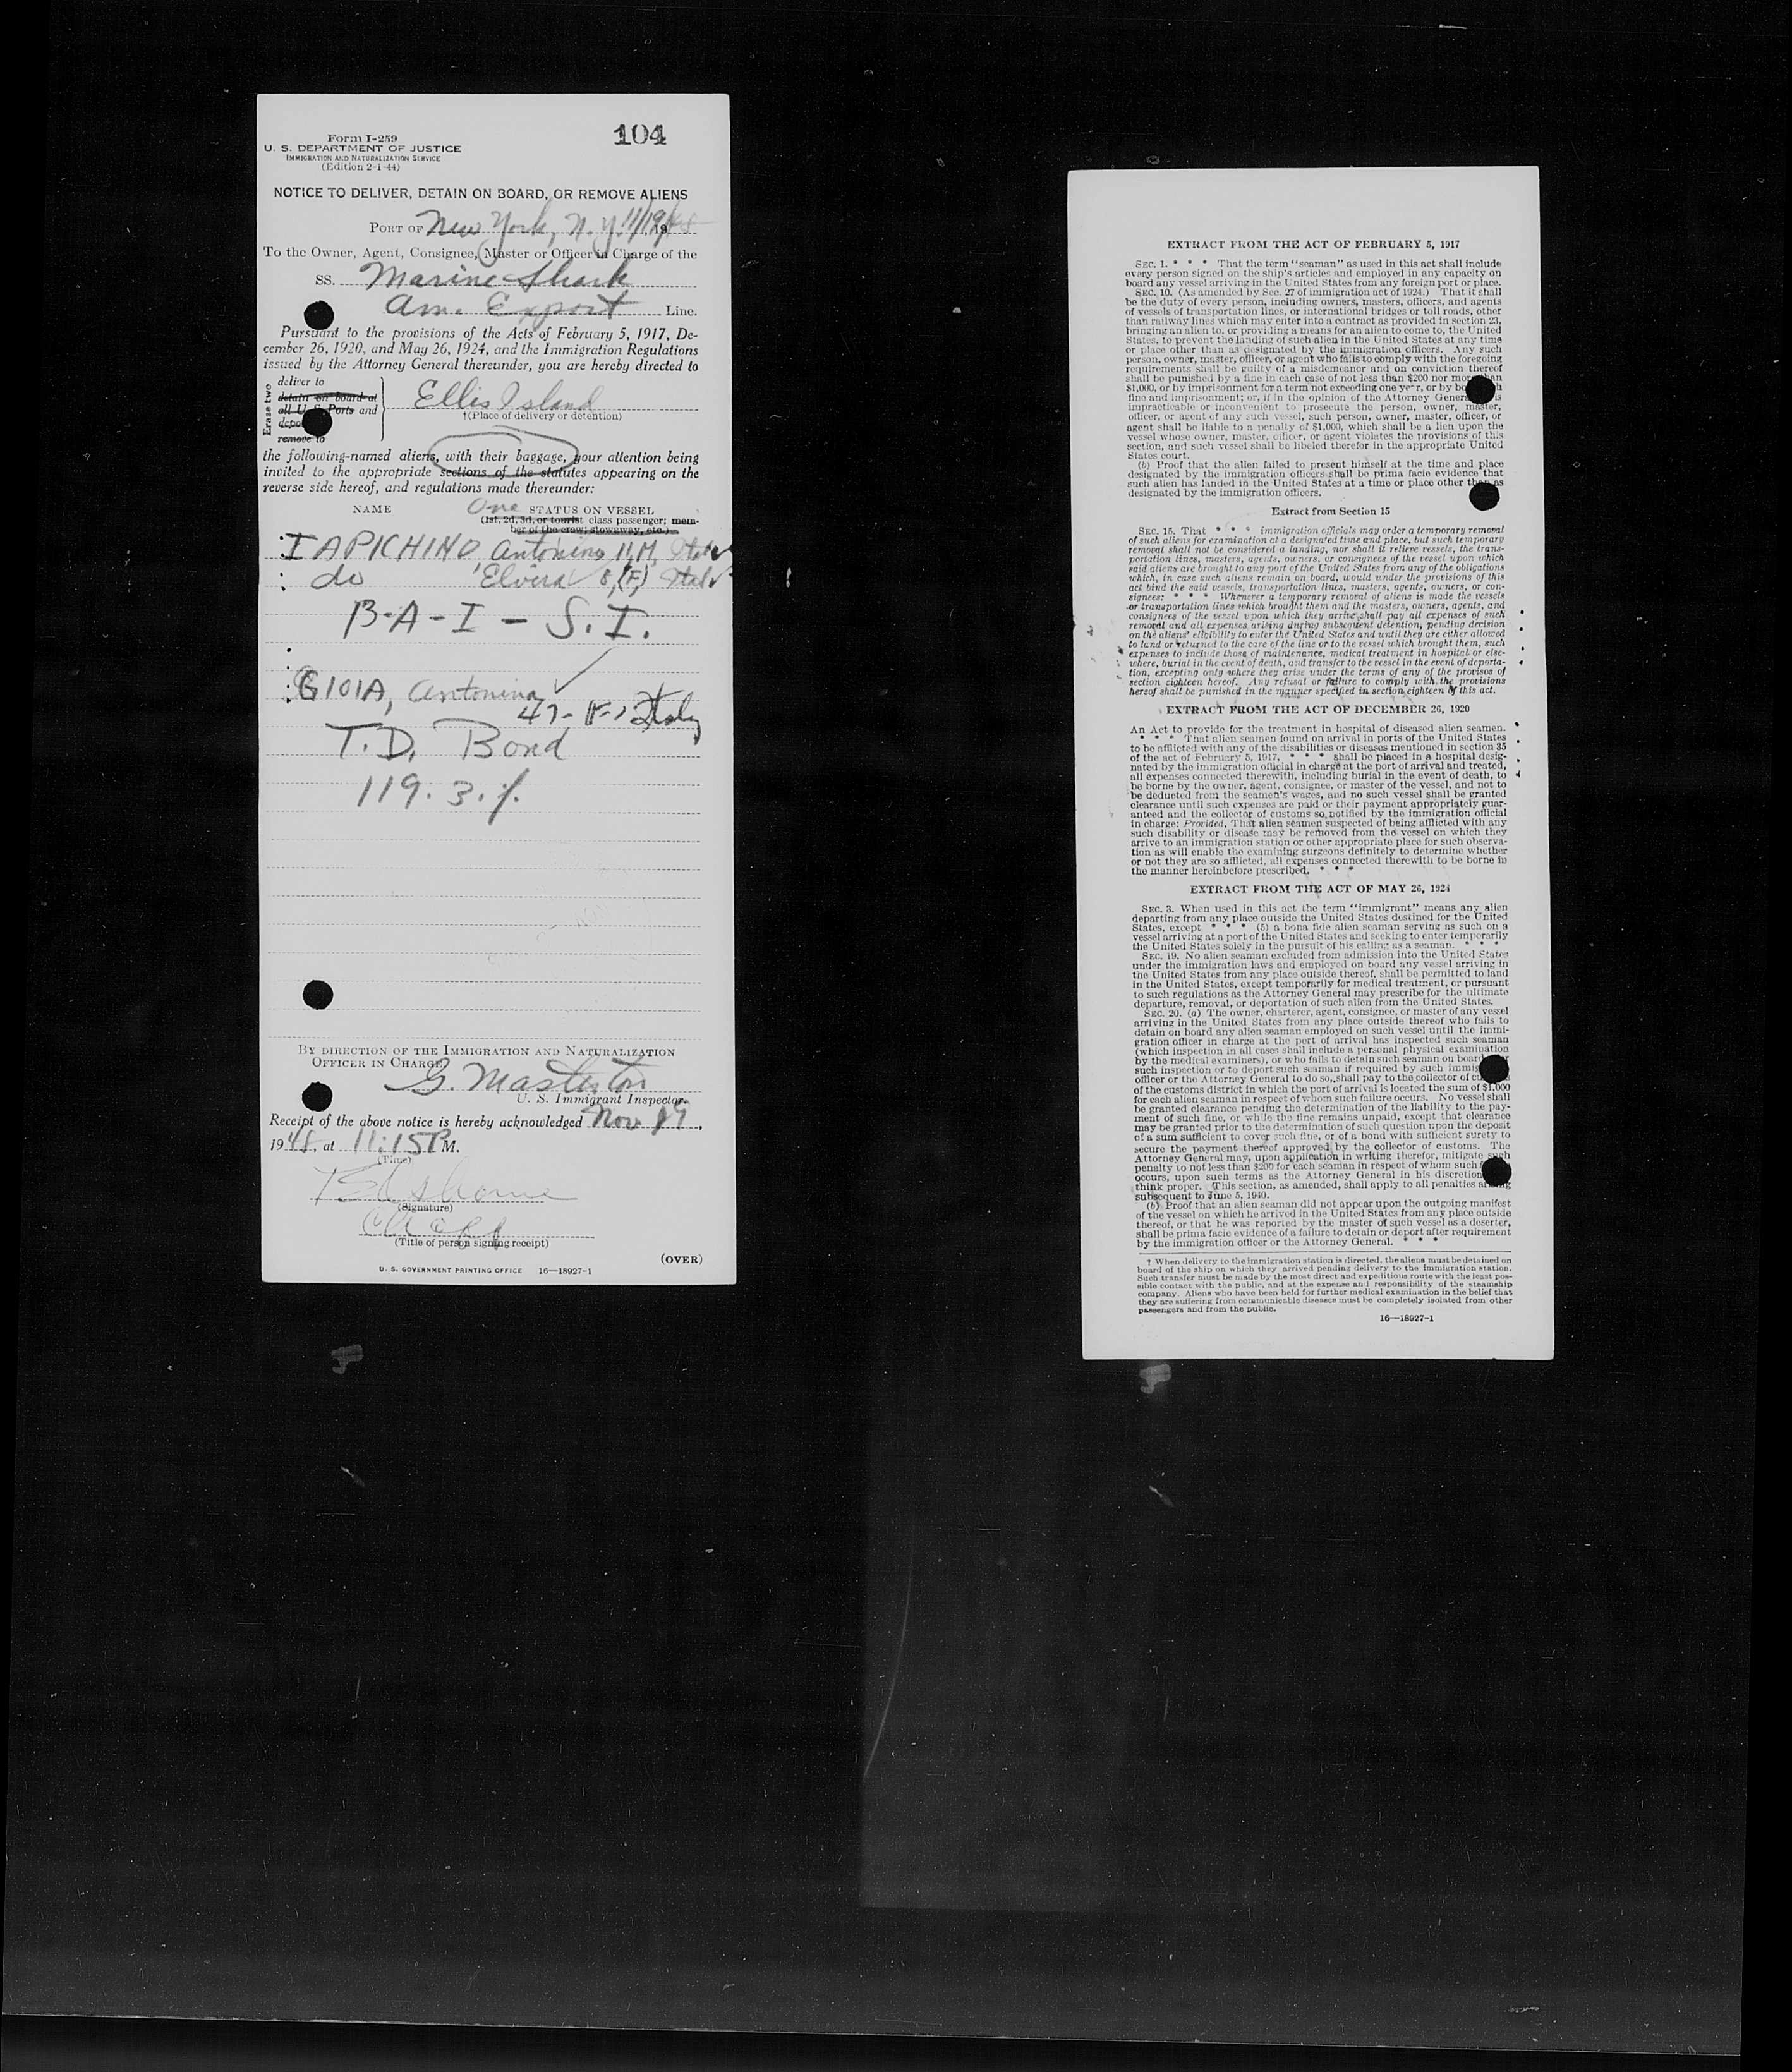 Form I-259
U. S. DEPARTMENT OF JUSTICE
IMMIGRATION AND NATURALIZATION SERVICE
(Edition 2-1-44)
104
NOTICE TO DELIVER, DETAIN ON BOARD, OR REMOVE ALIENS
PORT OF New York, N.Y. 11/19/48
To the Owner, Agent, Consignee, Master or Officer in Charge of the
SS. Marine Shark
Am. Export Line.
Pursuant to the provisions of the Acts of February 5, 1917, De-
cember 26, 1920, and May 26, 1924, and the Immigration Regulations
issued by the Attorney General thereunder, you are hereby directed to
Erase two
deliver to
detain on board at
all U. S. Ports and
remove to
Ellis Island
†(Place of delivery or detention)
the following-named aliens, with their baggage, your attention being
invited to the appropriate sections of the statutes appearing on the
reverse side hereof, and regulations made thereunder:
NAME One STATUS ON VESSEL
(1st, 2d, 3d, or tourist class passenger; mem-
ber of the crew; stowaway, etc.)
IAPICHINO Antonino 11, M, Italy
do Elvira 8, (F) Italy
B-A-I - S.I.
GIOIA, Antonina
47- (F) Italy
T.D. Bond
119.3.
BY DIRECTION OF THE IMMIGRATION AND NATURALIZATION
OFFICER IN CHARGE,
G. Masterton
U. S. Immigrant Inspector.
Receipt of the above notice is hereby acknowledged Nov 19,
1948, at 11:15 P M.
(Time)
(Signature)
(Title of person signing receipt)
(OVER)
U. S. GOVERNMENT PRINTING OFFICE 16—18927-1
EXTRACT FROM THE ACT OF FEBRUARY 5, 1917
SEC. 1. * * * That the term "seaman" as used in this act shall include
every person signed on the ship's articles and employed in any capacity on
board any vessel arriving in the United States from any foreign port or place.
SEC. 10. (As amended by Sec. 27 of immigration act of 1924.) That it shall
be the duty of every person, including owners, masters, officers, and agents
of vessels of transportation lines, or international bridges or toll roads, other
than railway lines which may enter into a contract as provided in section 23,
bringing an alien to, or providing a means for an alien to come to, the United
States, to prevent the landing of such alien in the United States at any time
or place other than as designated by the immigration officers. Any such
person, owner, master, officer, or agent who fails to comply with the foregoing
requirements shall be guilty of a misdemeanor and on conviction thereof
shall be punished by a fine in each case of not less than $200 nor more than
$1,000, or by imprisonment for a term not exceeding one year, or by both
fine and imprisonment; or, if in the opinion of the Attorney General is
impracticable or inconvenient to prosecute the person, owner, master,
officer, or agent of any such vessel, such person, owner, master, officer, or
agent shall be liable to a penalty of $1,000, which shall be a lien upon the
vessel whose owner, master, officer, or agent violates the provisions of this
section, and such vessel shall be libeled therefor in the appropriate United
States court.
(b) Proof that the alien failed to present himself at the time and place
designated by the immigration officers shall be prima facie evidence that
such alien has landed in the United States at a time or place other than as
designated by the immigration officers.
Extract from Section 15
SEC. 15. That * * * immigration officials may order a temporary removal
of such aliens for examination at a designated time and place, but such temporary
removal shall not be considered a landing, nor shall it relieve vessels, the trans-
portation lines, masters, agents, owners, or consignees of the vessel upon which
said aliens are brought to any port of the United States from any of the obligations
which, in case such aliens remain on board, would under the provisions of this
act bind the said vessels, transportation lines, masters, agents, owners, or con-
signees: * * * Whenever a temporary removal of aliens is made the vessels
or transportation lines which brought them and the masters, owners, agents, and
consignees of the vessel upon which they arrive shall pay all expenses of such
removal and all expenses arising during subsequent detention, pending decision
on the aliens' eligibility to enter the United States and until they are either allowed
to land or returned to the care of the line or to the vessel which brought them, such
expenses to include those of maintenance, medical treatment in hospital or else-
where, burial in the event of death, and transfer to the vessel in the event of deporta-
tion, excepting only where they arise under the terms of any of the provisos of
section eighteen hereof. Any refusal or failure to comply with the provisions
hereof shall be punished in the manner specified in section eighteen of this act.
EXTRACT FROM THE ACT OF DECEMBER 26, 1920
An Act to provide for the treatment in hospital of diseased alien seamen.
* * * That alien seamen found on arrival in ports of the United States
to be afflicted with any of the disabilities or diseases mentioned in section 35
of the act of February 5, 1917, * * * shall be placed in a hospital desig-
nated by the immigration official in charge at the port of arrival and treated,
all expenses connected therewith, including burial in the event of death, to
be borne by the owner, agent, consignee, or master of the vessel, and not to
be deducted from the seamen's wages, and no such vessel shall be granted
clearance until such expenses are paid or their payment appropriately guar-
anteed and the collector of customs so notified by the immigration official
in charge: Provided, That alien seamen suspected of being afflicted with any
such disability or disease may be removed from the vessel on which they
arrive to an immigration station or other appropriate place for such observa-
tion as will enable the examining surgeons definitely to determine whether
or not they are so afflicted, all expenses connected therewith to be borne in
the manner hereinbefore prescribed. * * *
EXTRACT FROM THE ACT OF MAY 26, 1924
SEC. 3. When used in this act the term "immigrant" means any alien
departing from any place outside the United States destined for the United
States, except * * * (5) a bona fide alien seaman serving as such on a
vessel arriving at a port of the United States and seeking to enter temporarily
the United States solely in the pursuit of his calling as a seaman. * * *
SEC. 19. No alien seaman excluded from admission into the United States
under the immigration laws and employed on board any vessel arriving in
the United States from any place outside thereof, shall be permitted to land
in the United States, except temporarily for medical treatment, or pursuant
to such regulations as the Attorney General may prescribe for the ultimate
departure, removal, or deportation of such alien from the United States.
SEC. 20. (a) The owner, charterer, agent, consignee, or master of any vessel
arriving in the United States from any place outside thereof who fails to
detain on board any alien seaman employed on such vessel until the immi-
gration officer in charge at the port of arrival has inspected such seaman
(which inspection in all cases shall include a personal physical examination
by the medical examiners), or who fails to detain such seaman on board
such inspection or to deport such seaman if required by such
officer or the Attorney General to do so, shall pay to the collector of
of the customs district in which the port of arrival is located the sum of $1,000
for each alien seaman in respect of whom such failure occurs. No vessel shall
be granted clearance pending the determination of the liability to the pay-
ment of such fine, or while the fine remains unpaid, except that clearance
may be granted prior to the determination of such question upon the deposit
of a sum sufficient to cover such fine, or of a bond with sufficient surety to
secure the payment thereof approved by the collector of customs. The
Attorney General may, upon application in writing therefor, mitigate such
penalty to not less than $200 for each seaman in respect of whom such
occurs, upon such terms as the Attorney General in his discretion
think proper. This section, as amended, shall apply to all penalties arising
subsequent to June 5, 1940.
(b) Proof that an alien seaman did not appear upon the outgoing manifest
of the vessel on which he arrived in the United States from any place outside
thereof, or that he was reported by the master of such vessel as a deserter,
shall be prima facie evidence of a failure to detain or deport after requirement
by the immigration officer or the Attorney General. * * *
† When delivery to the immigration station is directed, the aliens must be detained on
board of the ship on which they arrived pending delivery to the immigration station.
Such transfer must be made by the most direct and expeditious route with the least pos-
sible contact with the public, and at the expense and responsibility of the steamship
company. Aliens who have been held for further medical examination in the belief that
they are suffering from communicable diseases must be completely isolated from other
passengers and from the public.
16—18927-1